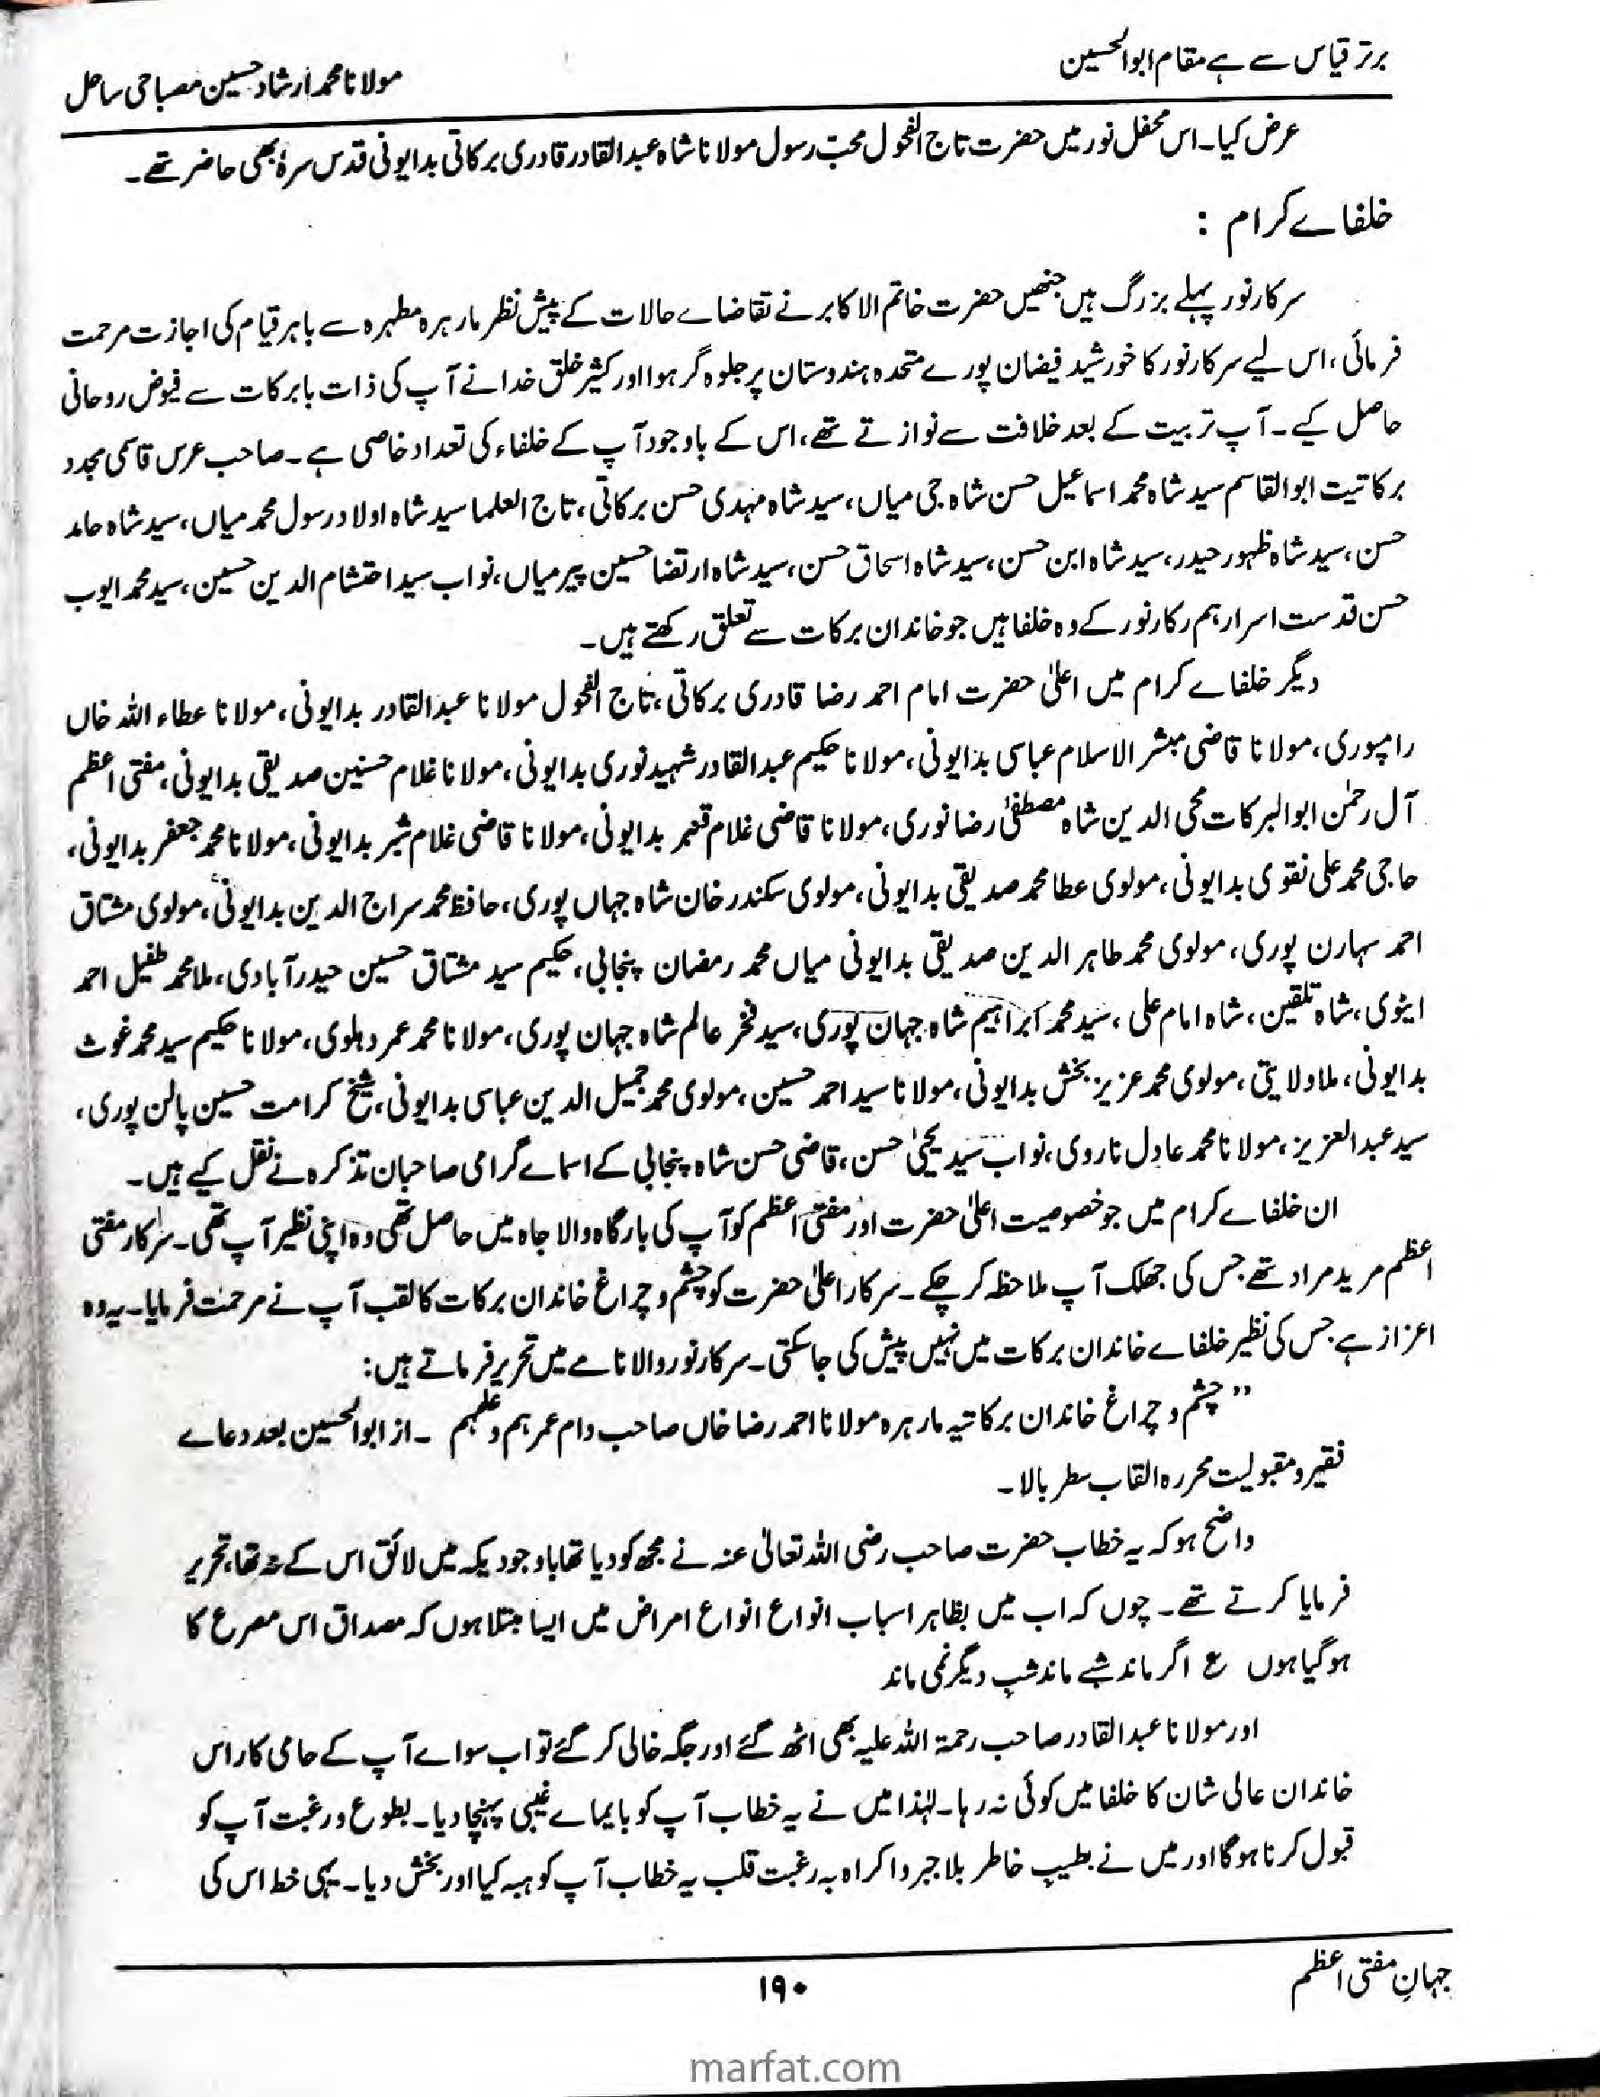 برتر قیاس سے ہے مقام ابوالحسین
مولانا محمد ارشاد حسین مصباحی ساحل
عرض کیا۔ اس محفل نور میں حضرت تاج الفحول محبّ رسول مولانا شاہ عبدالقادر قادری برکاتی بدایونی قدس سرہٗ بھی حاضر تھے۔
خلفاے کرام :
سرکار نور پہلے بزرگ ہیں جنھیں حضرت خاتم الاکابر نے تقاضاے حالات کے پیش نظر مارہرہ مطہرہ سے باہر قیام کی اجازت مرحمت
فرمائی، اس لیے سرکار نور کا خورشید فیضان پورے متحدہ ہندوستان پر جلوہ گر ہوا اور کثیر خلق خدا نے آپ کی ذات بابرکات سے فیوض روحانی
حاصل کیے۔ آپ تربیت کے بعد خلافت سے نوازتے تھے، اس کے باوجود آپ کے خلفاء کی تعداد خاصی ہے۔ صاحب عرس قاسمی مجدد
برکاتیت ابوالقاسم سید شاہ محمد اسماعیل حسن شاہ جی میاں، سید شاہ مہدی حسن برکاتی، تاج العلما سید شاہ اولاد رسول محمد میاں، سید شاہ حامد
حسن، سید شاہ ظہور حیدر، سید شاہ ابن حسن، سید شاہ اسحاق حسن، سید شاہ ارتضا حسین پیر میاں، نواب سید احتشام الدین حسین، سید محمد ایوب
حسن قدست اسرارہم رکار نور کے وہ خلفا ہیں جو خاندان برکات سے تعلق رکھتے ہیں۔
دیگر خلفاے کرام میں اعلیٰ حضرت امام احمد رضا قادری برکاتی، تاج الفحول مولانا عبدالقادر بدایونی، مولانا عطاء اللہ خاں
رامپوری، مولانا قاضی مبشر الاسلام عباسی بدایونی، مولانا حکیم عبدالقادر شہید نوری بدایونی، مولانا غلام حسنین صدیقی بدایونی، مفتی اعظم
آل رحمٰن ابوالبرکات محی الدین شاہ مصطفیٰ رضا نوری، مولانا قاضی غلام قنبر بدایونی، مولانا قاضی غلام شبر بدایونی، مولانا محمد جعفر بدایونی،
حاجی محمد علی نقوی بدایونی، مولوی عطا محمد صدیقی بدایونی، مولوی سکندر خان شاہ جہاں پوری، حافظ محمد سراج الدین بدایونی، مولوی مشتاق
احمد سہارن پوری، مولوی محمد طاہر الدین صدیقی بدایونی میاں محمد رمضان پنجابی، حکیم سید مشتاق حسین حیدرآبادی، ملا محمد طفیل احمد
اینوی، شاہ تلقین، شاہ امام علی، سید محمد ابراہیم شاہ جہان پوری، سید فخر عالم شاہ جہان پوری، مولانا محمد عمر دہلوی، مولانا حکیم سید محمد غوث
بدایونی، ملا ولایتی، مولوی محمد عزیز بخش بدایونی، مولانا سید احمد حسین، مولوی محمد جمیل الدین عباسی بدایونی، شیخ کرامت حسین پالن پوری،
سید عبدالعزیز، مولانا محمد عادل ناروی، نواب سید یحییٰ حسن، قاضی حسن شاہ پنجابی کے اسماے گرامی صاحبان تذکرہ نے نقل کیے ہیں۔
ان خلفاے کرام میں جو خصوصیت اعلیٰ حضرت اور مفتی اعظم کو آپ کی بارگاہ والا جاہ میں حاصل تھی وہ اپنی نظیر آپ تھی۔ سرکار مفتی
اعظم مرید مراد تھے جس کی جھلک آپ ملاحظہ کر چکے۔ سرکار اعلیٰ حضرت کو چشم و چراغ خاندان برکات کا لقب آپ نے مرحمت فرمایا۔ یہ وہ
اعزاز ہے جس کی نظیر خلفاے خاندان برکات میں نہیں پیش کی جاسکتی۔ سرکار نور والا نامے میں تحریر فرماتے ہیں:
”چشم و چراغ خاندان برکاتیہ مارہرہ مولانا احمد رضا خاں صاحب دام عمرہم وعلمہم ۔ از ابوالحسین بعد دعاے
فقیر و مقبولیت محررہ القاب سطر بالا۔
واضح ہو کہ یہ خطاب حضرت صاحب رضی اللہ تعالیٰ عنہ نے مجھ کو دیا تھا باوجودیکہ میں لائق اس کے نہ تھا، تحریر
فرمایا کرتے تھے۔ چوں کہ اب میں بظاہر اسباب انواع انواع امراض میں ایسا مبتلا ہوں کہ مصداق اس مصرع کا
ہوگیا ہوں ع اگر ماند شبے ماند شب دیگر نمی ماند
اور مولانا عبدالقادر صاحب رحمۃ اللہ علیہ بھی اٹھ گئے اور جگہ خالی کر گئے تو اب سواے آپ کے حامی کار اس
خاندان عالی شان کا خلفا میں کوئی نہ رہا۔ لہٰذا میں نے یہ خطاب آپ کو بایماے غیبی پہنچا دیا۔ بطوع و رغبت آپ کو
قبول کرنا ہوگا اور میں نے بطیب خاطر بلا جبر و اکراہ بہ رغبت قلب یہ خطاب آپ کو ہبہ کیا اور بخش دیا۔ یہی خط اس کی
جہانِ مفتی اعظم
۱۹۰
marfat.com